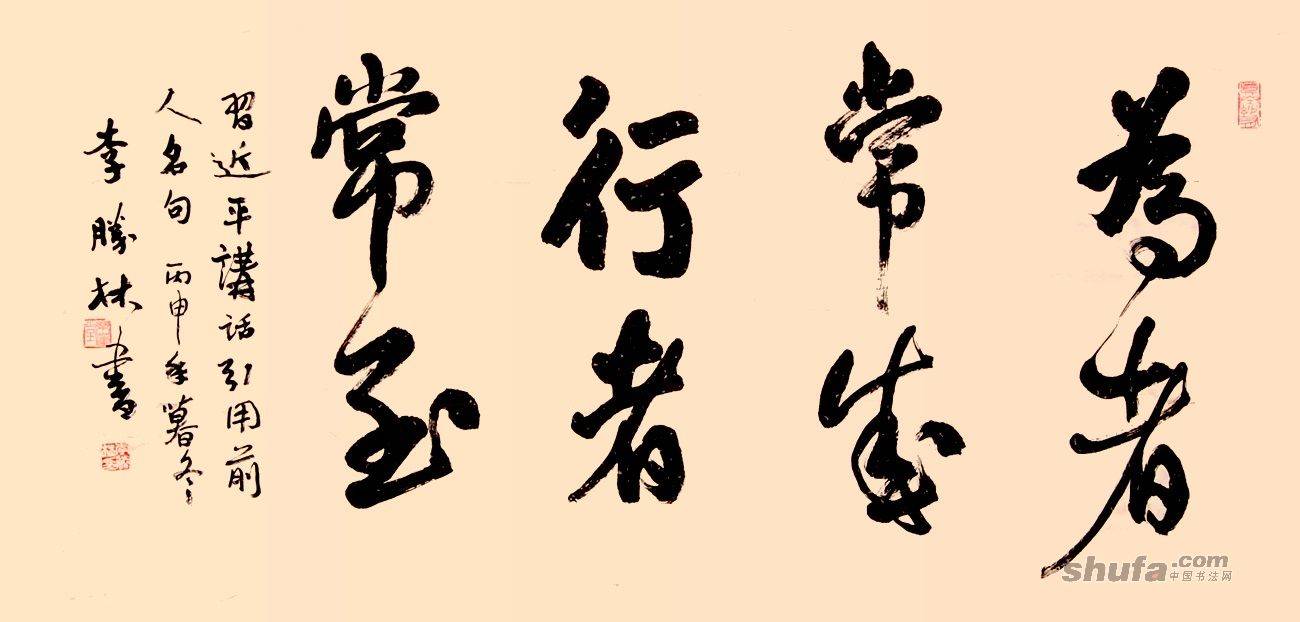 為者
常成
行者
常至
習近平講話引用前
人名句 丙申年暮冬
李勝林書
shufa.com
中国书法网